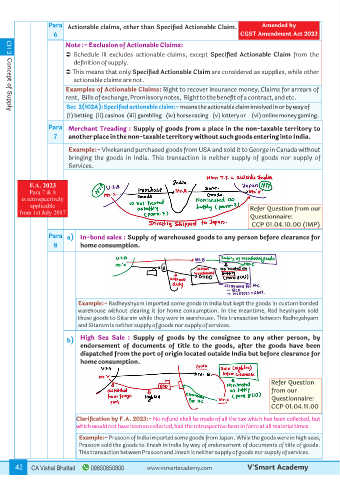 Para 6
Actionable claims, other than Specified Actionable Claim.
Amended by CGST Amendment Act 2023
Note :- Exclusion of Actionable Claims:
Schedule III excludes actionable claims, except Specified Actionable Claim from the
definition of supply.
This means that only Specified Actionable Claim are considered as supplies, while other
actionable claims are not.
Examples of Actionable Claims: Right to recover insurance money, Claims for arrears of
rent, Bills of exchange, Promissory notes, Right to the benefit of a contract, and etc.
Sec 2(102A): Specified actionable claim: - means the actionable claim involved in or by way of
(i) betting (ii) casinos (iii) gambling (iv) horse racing (v) lottery or (vi) online money gaming.
CH 3
Concept of Supply
Para 7
Merchant Trading : Supply of goods from a place in the non-taxable territory to
another place in the non-taxable territory without such goods entering into India.
Example: - Vivekanand purchased goods from USA and sold it to George in Canada without
bringing the goods in India. This transaction is neither supply of goods nor supply of
Services.
F.A. 2023
Para 7 & 8
is retrospectively
applicable
from 1st July 2017
Non T.T. = outside India
India
U.S.A
Purchase
Goods
Sale
Goods
Japan
Directly Shipped to Japan
Refer Question from our
Questionnaire:
CCP 01.04.10.00 (IMP)
Para 8
a) In-bond sales : Supply of warehoused goods to any person before clearance for
home consumption.
U.S.A
Example: - Radheyshyam imported some goods in India but kept the goods in custom bonded
warehouse without clearing it for home consumption. In the meantime, Radheyshyam sold
those goods to Sitaram while they were in warehouse. This transaction between Radheyshyam
and Sitaram is neither supply of goods nor supply of services.
b) High Sea Sale : Supply of goods by the consignee to any other person, by
endorsement of documents of title to the goods, after the goods have been
dispatched from the port of origin located outside India but before clearance for
home consumption.
USA
India
Refer Question
from our
Questionnaire:
CCP 01.04.11.00
Clarification by F.A. 2023: - No refund shall be made of all the tax which has been collected, but
which would not have been so collected, had the retrospective been in force at all material times
Example: - Prasoon of India imported some goods from Japan. While the goods were in high seas,
Prasoon sold the goods to Jinesh in India by way of endorsement of documents of title of goods.
This transaction between Prasoon and Jinesh is neither supply of goods nor supply of services.
42
CA Vishal Bhattad
09850850800
www.vsmartacademy.com
V'Smart Academy